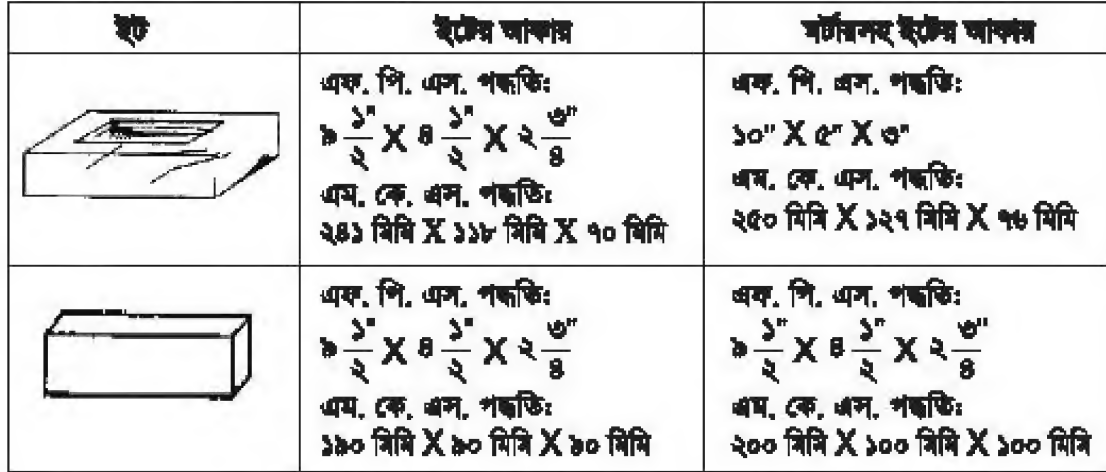 ইট	ইটের আকার	মর্টারসহ ইটের আকার
এফ. পি. এস. পদ্ধতিঃ
৯ ১/২" X ৪ ১/২" X ২ ৩/৪"
এম. কে. এস. পদ্ধতিঃ
২৪১ মিমি X ১১৮ মিমি X ৭০ মিমি
এফ. পি. এস. পদ্ধতিঃ
১০" X ৫" X ৩"
এম. কে. এস. পদ্ধতিঃ
২৫০ মিমি X ১২৭ মিমি X ৭৬ মিমি
এফ. পি. এস. পদ্ধতিঃ
৯ ১/২" X ৪ ১/২" X ২ ৩/৪"
এম. কে. এস. পদ্ধতিঃ
১৯০ মিমি X ৯০ মিমি X ৯০ মিমি
এফ. পি. এস. পদ্ধতিঃ
৯ ১/২" X ৪ ১/২" X ২ ৩/৪"
এম. কে. এস. পদ্ধতিঃ
২০০ মিমি X ১০০ মিমি X ১০০ মিমি